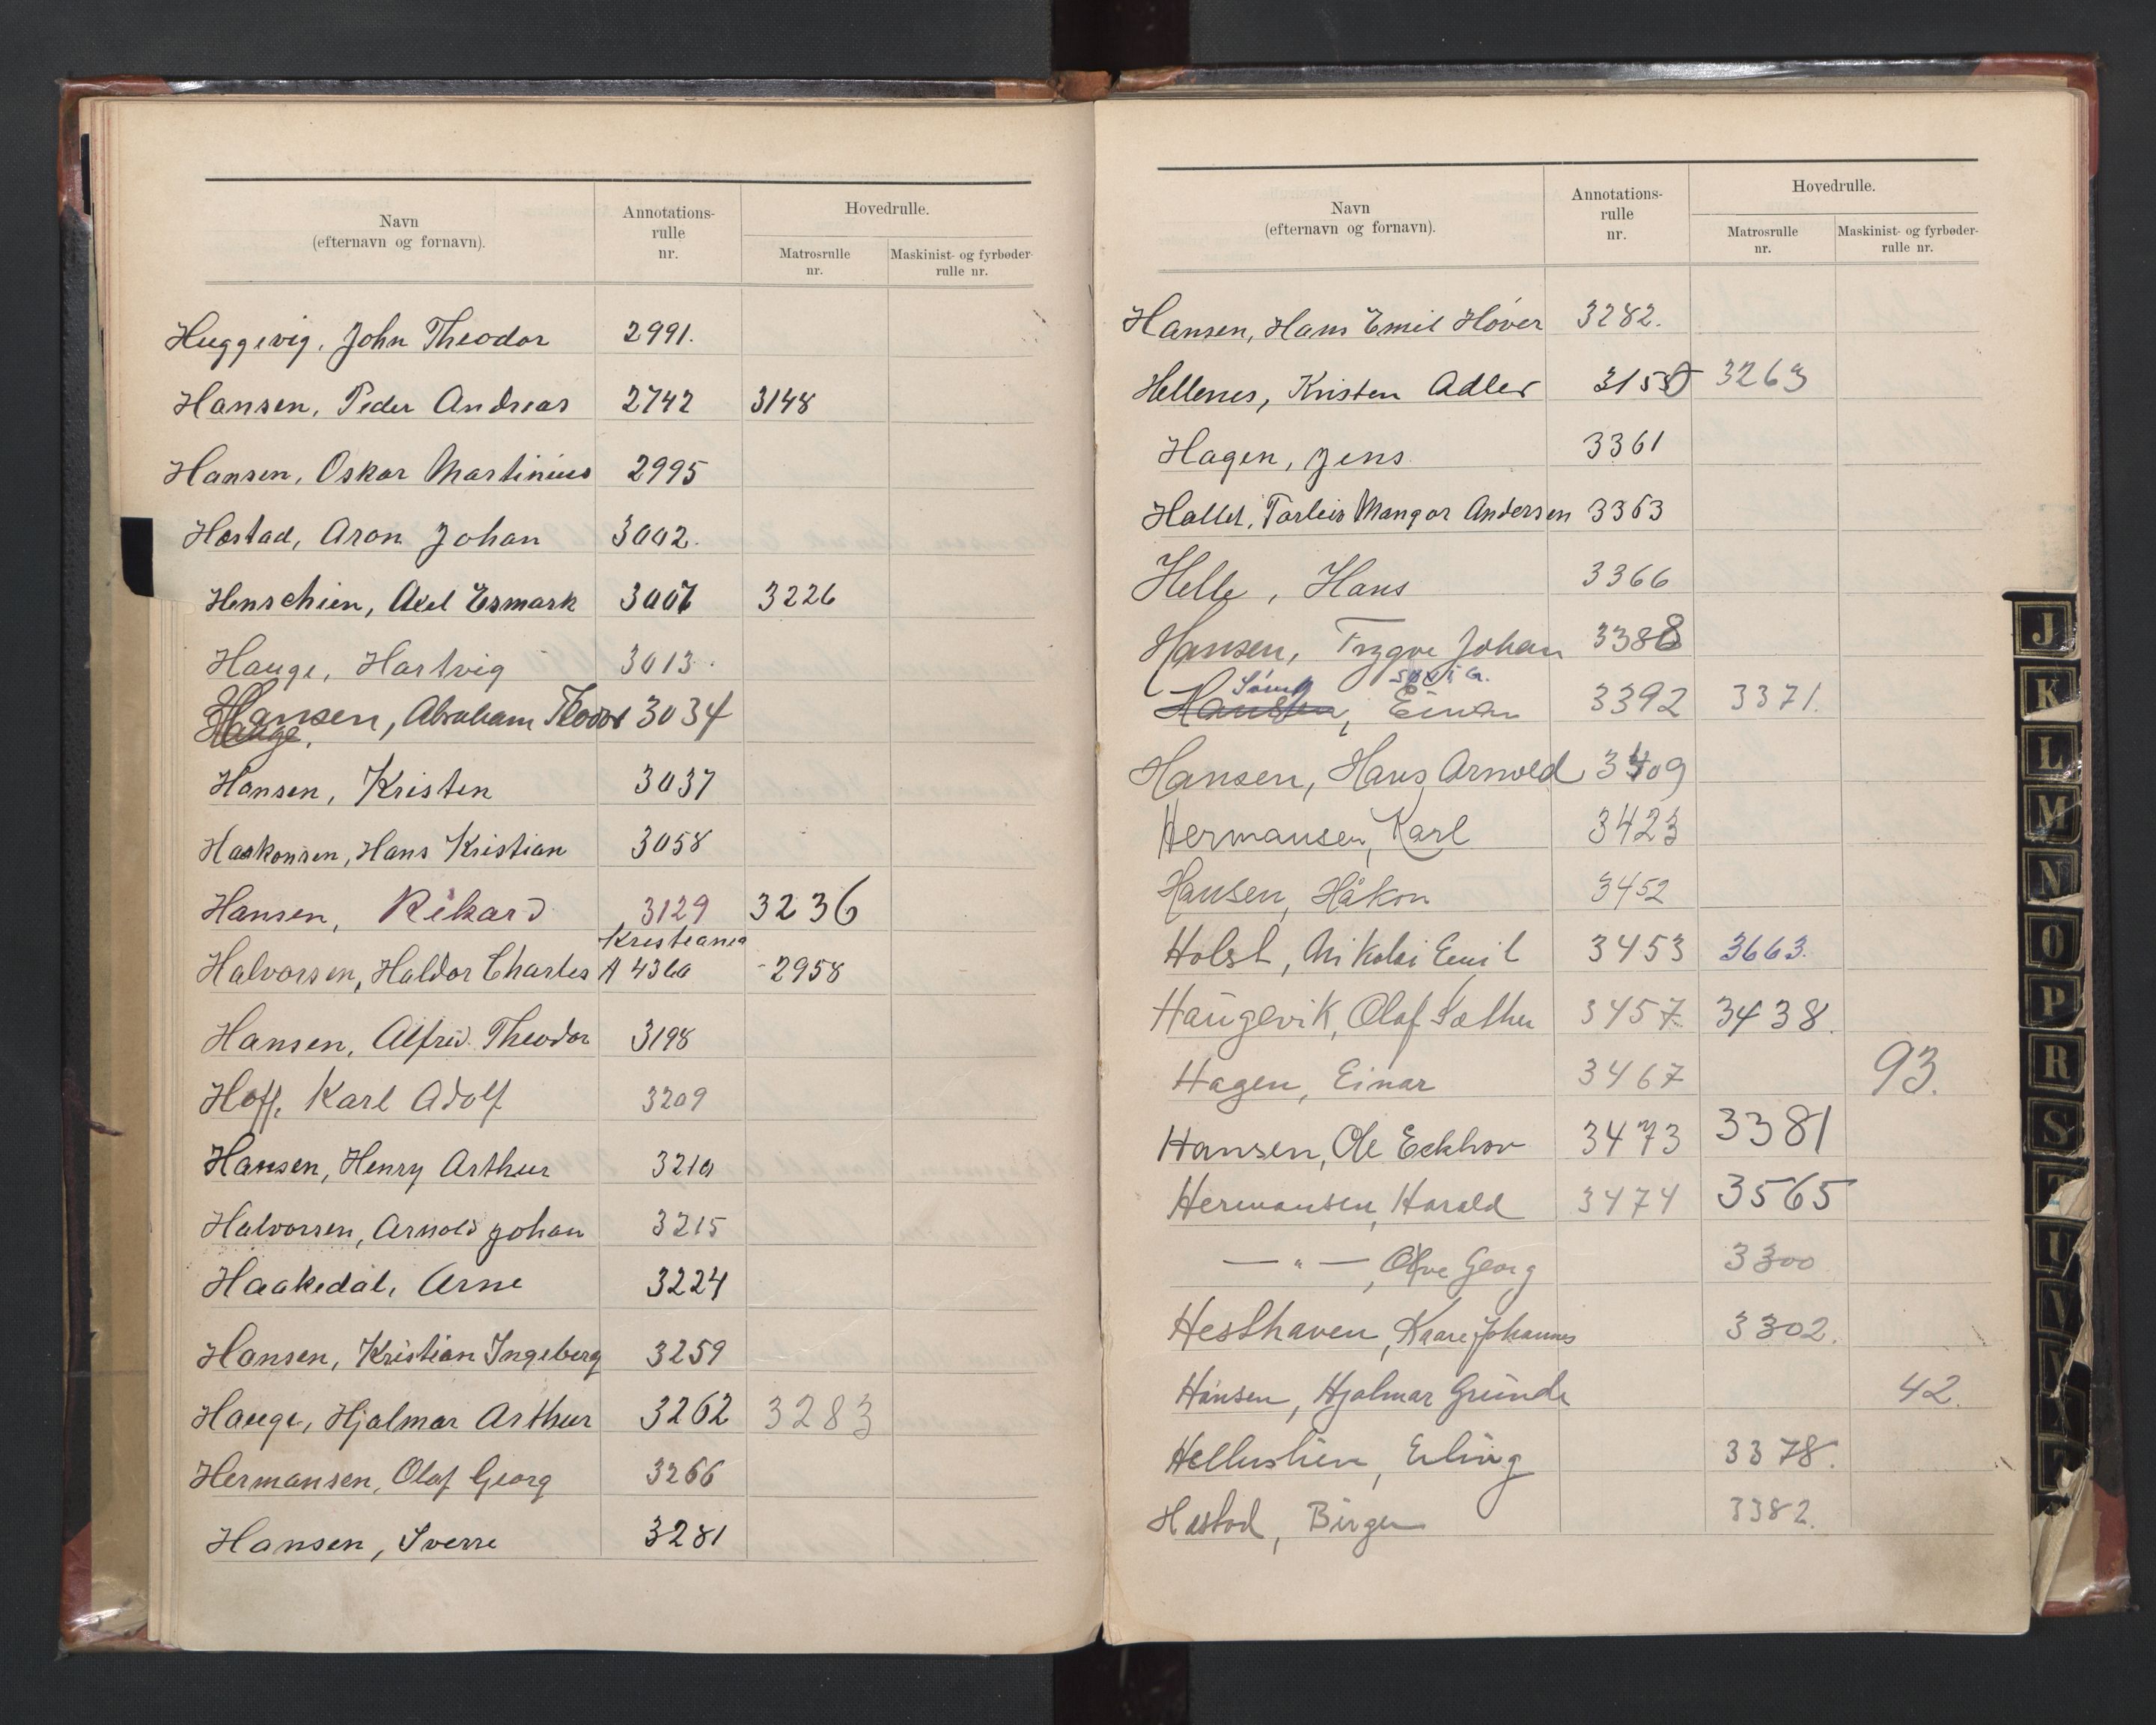 Navn
(efternavn og fornavn).
Annotations-
rulle
nr.
Hovedrulle.
Matrosrulle
nr.
Maskinist- og fyrbøder-
rulle nr.
Huggevig, John Theodor 2991.
Hansen, Peder Andreas 2742 3148
Hansen, Oskar Martinius 2995
Hæstad, Aron Johan 3002.
Henschien, Axel Esmark 3007 3226
Hauge, Hartvig 3013.
Hansen, Abraham Theodor 3034
Hauge,
Hansen, Kristen 3037
Haakonsen, Hans Kristian 3058
Hansen, Rikard 3129 3236
Kristiania
Halvorsen, Haldor Charles A 4360 2958
Hansen, Alfred Theodor 3198
Hoff, Karl Adolf 3209
Hansen, Henry Arthur 3210
Halvorsen, Arnold Johan 3215
Haakedal, Arne 3224
Hansen, Kristian Ingeberg 3259
Hauge, Hjalmar Arthur 3262 3283
Hermansen, Olaf Georg 3266
Hansen, Sverre 3281
Navn
(efternavn og fornavn).
Annotations-
rulle
nr.
Hovedrulle.
Matrosrulle
nr.
Maskinist- og fyrbøder-
rulle nr.
Hansen, Hans Emil Høver 3282.
Hellenes, Kristen Adler 3263
Hagen, Jens 3361
Torleiv Mangor Andersen 3363
Helle, Hans 3366
Hansen, Trygve Johan 3388
Hansen, Einar 3392 3371.
Hansen, Hans Arnold 3409
Hermansen, Karl 3423
Hansen, Håkon 3452
Holst, Nikolai Emil 3453 3663.
Haugevik, Olaf Sæther 3457 3438.
Hagen, Einar 3467 93.
Hansen, Ole Eckhov 3473 3381
Hermansen, Harald 3474 3565
— " —, Georg 3300
Hesthaven, Kaare Johannes 3302.
Hansen, Hjalmar Grunde 42.
Hellestien, Erling 3378.
Hæstad, Birger 3382.
J
K
L
M
N
O
P
R
S
T
U
V